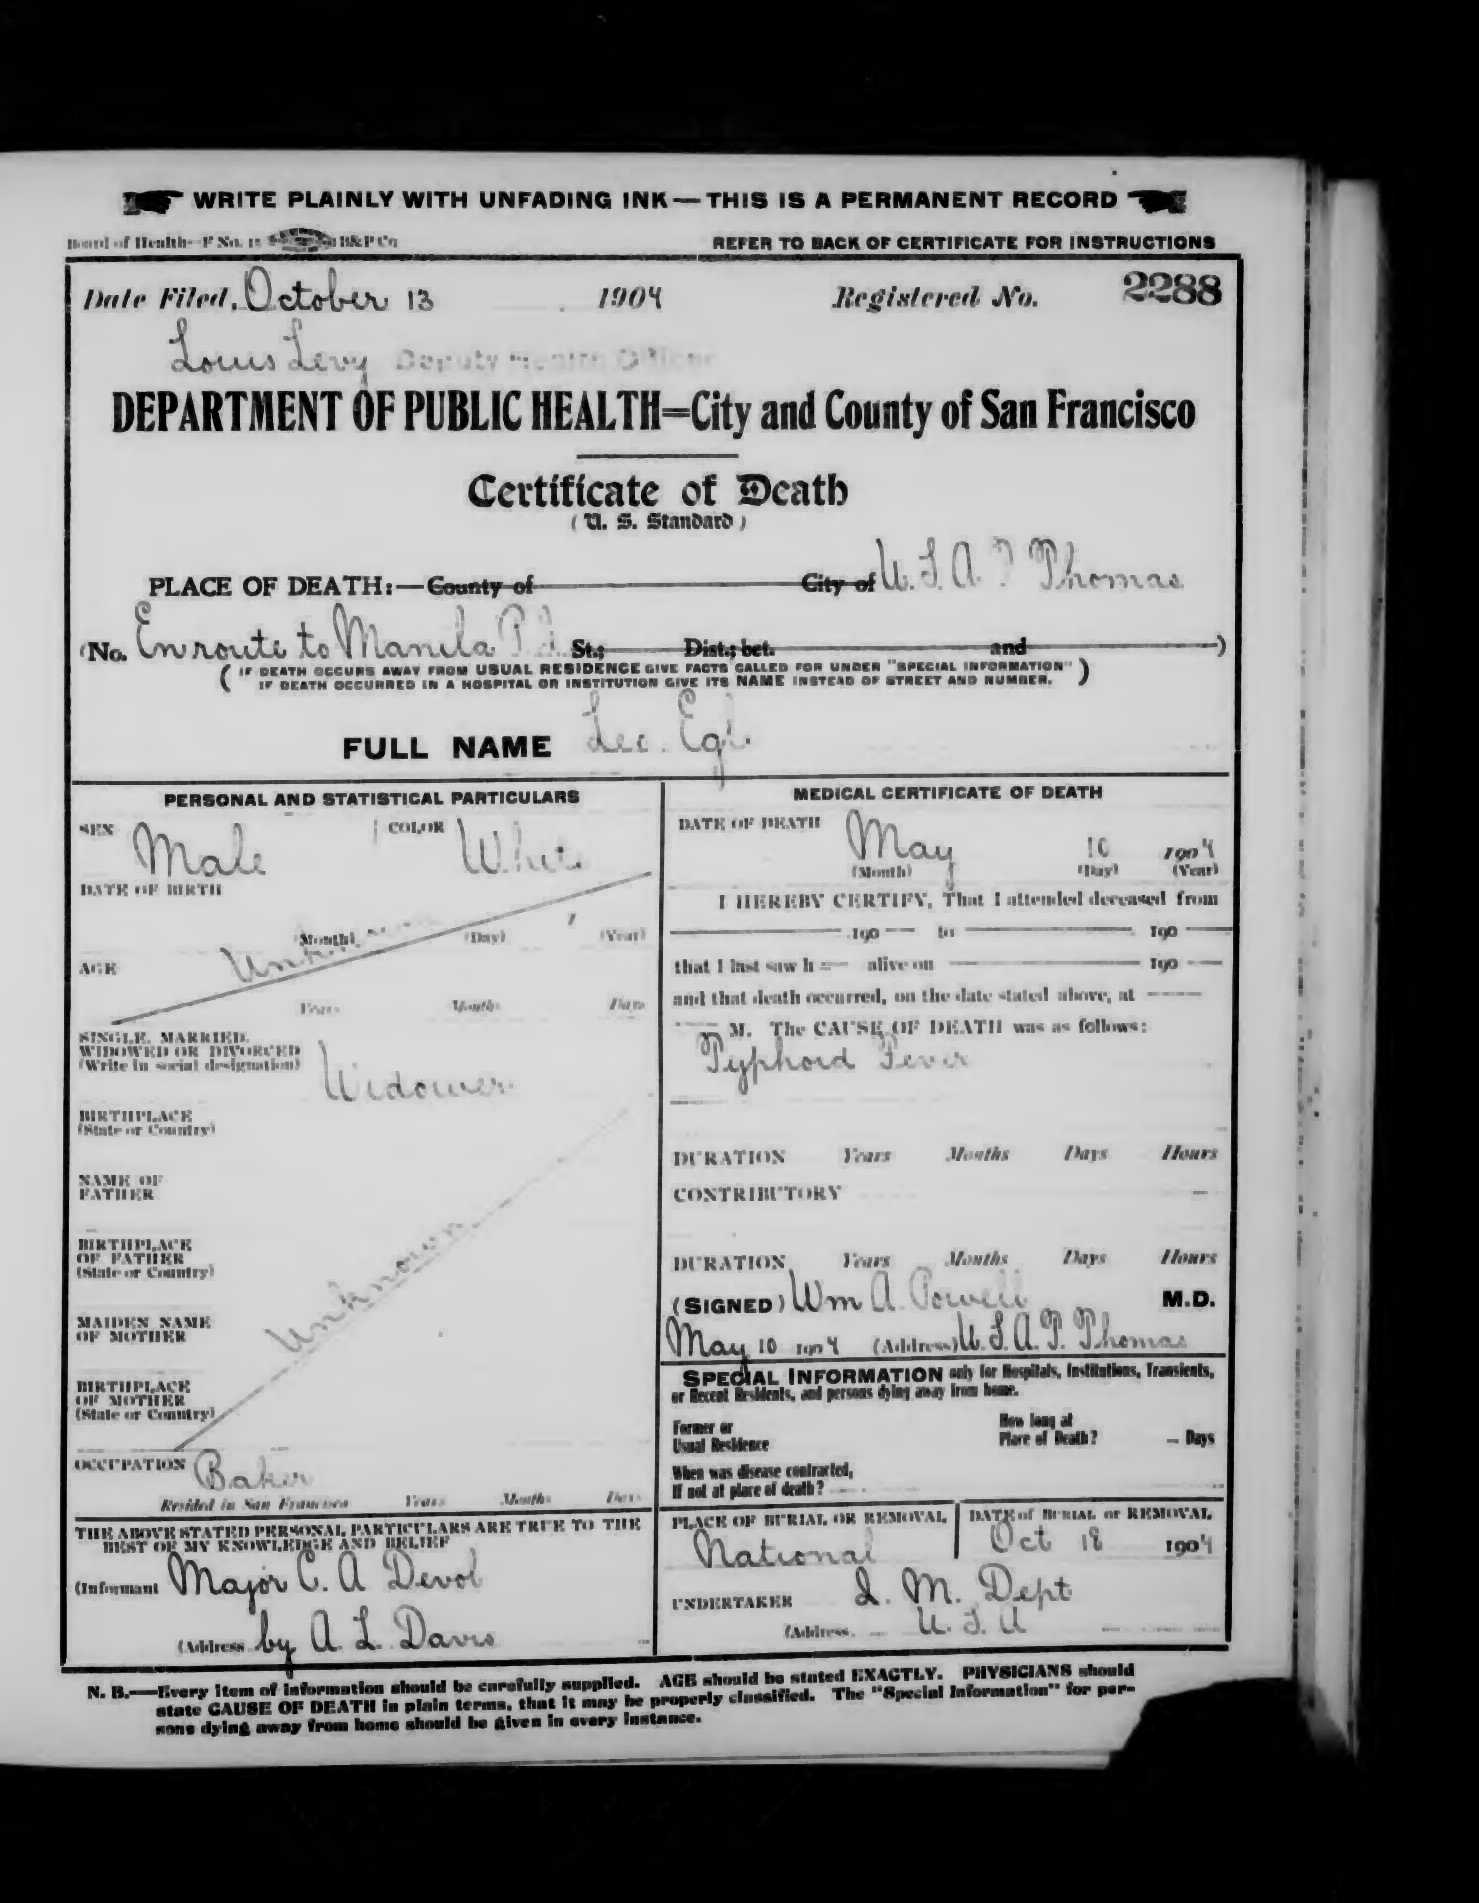 WRITE PLAINLY WITH UNFADING INK — THIS IS A PERMANENT RECORD
Board of Health—F No. 15 B&P Co
REFER TO BACK OF CERTIFICATE FOR INSTRUCTIONS
Date Filed, October 13 1904 Registered No. 2288
Louis Levy Deputy Health Officer
DEPARTMENT OF PUBLIC HEALTH=City and County of San Francisco
Certificate of Death
( U. S. Standard )
PLACE OF DEATH:—County of City of U. S. A. T Thomas
(No. Enroute to Manila P.I. St.; Dist.; bet. and )
( IF DEATH OCCURS AWAY FROM USUAL RESIDENCE GIVE FACTS CALLED FOR UNDER "SPECIAL INFORMATION" )
( IF DEATH OCCURRED IN A HOSPITAL OR INSTITUTION GIVE ITS NAME INSTEAD OF STREET AND NUMBER. )
FULL NAME
PERSONAL AND STATISTICAL PARTICULARS
SEX Male COLOR White
DATE OF BIRTH
(Month) (Day) (Year)
AGE Unknown
Years Months Days
SINGLE, MARRIED,
WIDOWED OR DIVORCED
(Write in social designation) Widower
BIRTHPLACE
(State or Country)
NAME OF
FATHER
BIRTHPLACE
OF FATHER
(State or Country)
Unknown
MAIDEN NAME
OF MOTHER
BIRTHPLACE
OF MOTHER
(State or Country)
OCCUPATION Baker
Resided in San Francisco Years Months Days
THE ABOVE STATED PERSONAL PARTICULARS ARE TRUE TO THE
BEST OF MY KNOWLEDGE AND BELIEF
(Informant Major C. A Devol
(Address by A. L. Davis
MEDICAL CERTIFICATE OF DEATH
DATE OF DEATH May 10 1904
(Month) (Day) (Year)
I HEREBY CERTIFY, That I attended deceased from
190 to 190
that I last saw h alive on 190
and that death occurred, on the date stated above, at
M. The CAUSE OF DEATH was as follows:
Typhoid Fever
DURATION Years Months Days Hours
CONTRIBUTORY
DURATION Years Months Days Hours
(SIGNED) Wm A. Powell M.D.
May 10 1904 (Address) U. S. A. T. Thomas
SPECIAL INFORMATION only for Hospitals, Institutions, Transients,
or Recent Residents, and persons dying away from home.
Former or
Usual Residence
How long at
Place of Death? Days
When was disease contracted,
If not at place of death?
PLACE OF BURIAL OR REMOVAL
National
DATE of BURIAL or REMOVAL
Oct 18 1904
UNDERTAKER Q. M. Dept
(Address U. S. A
N. B.—Every item of information should be carefully supplied. AGE should be stated EXACTLY. PHYSICIANS should
state CAUSE OF DEATH in plain terms, that it may be properly classified. The "Special Information" for per-
sons dying away from home should be given in every instance.